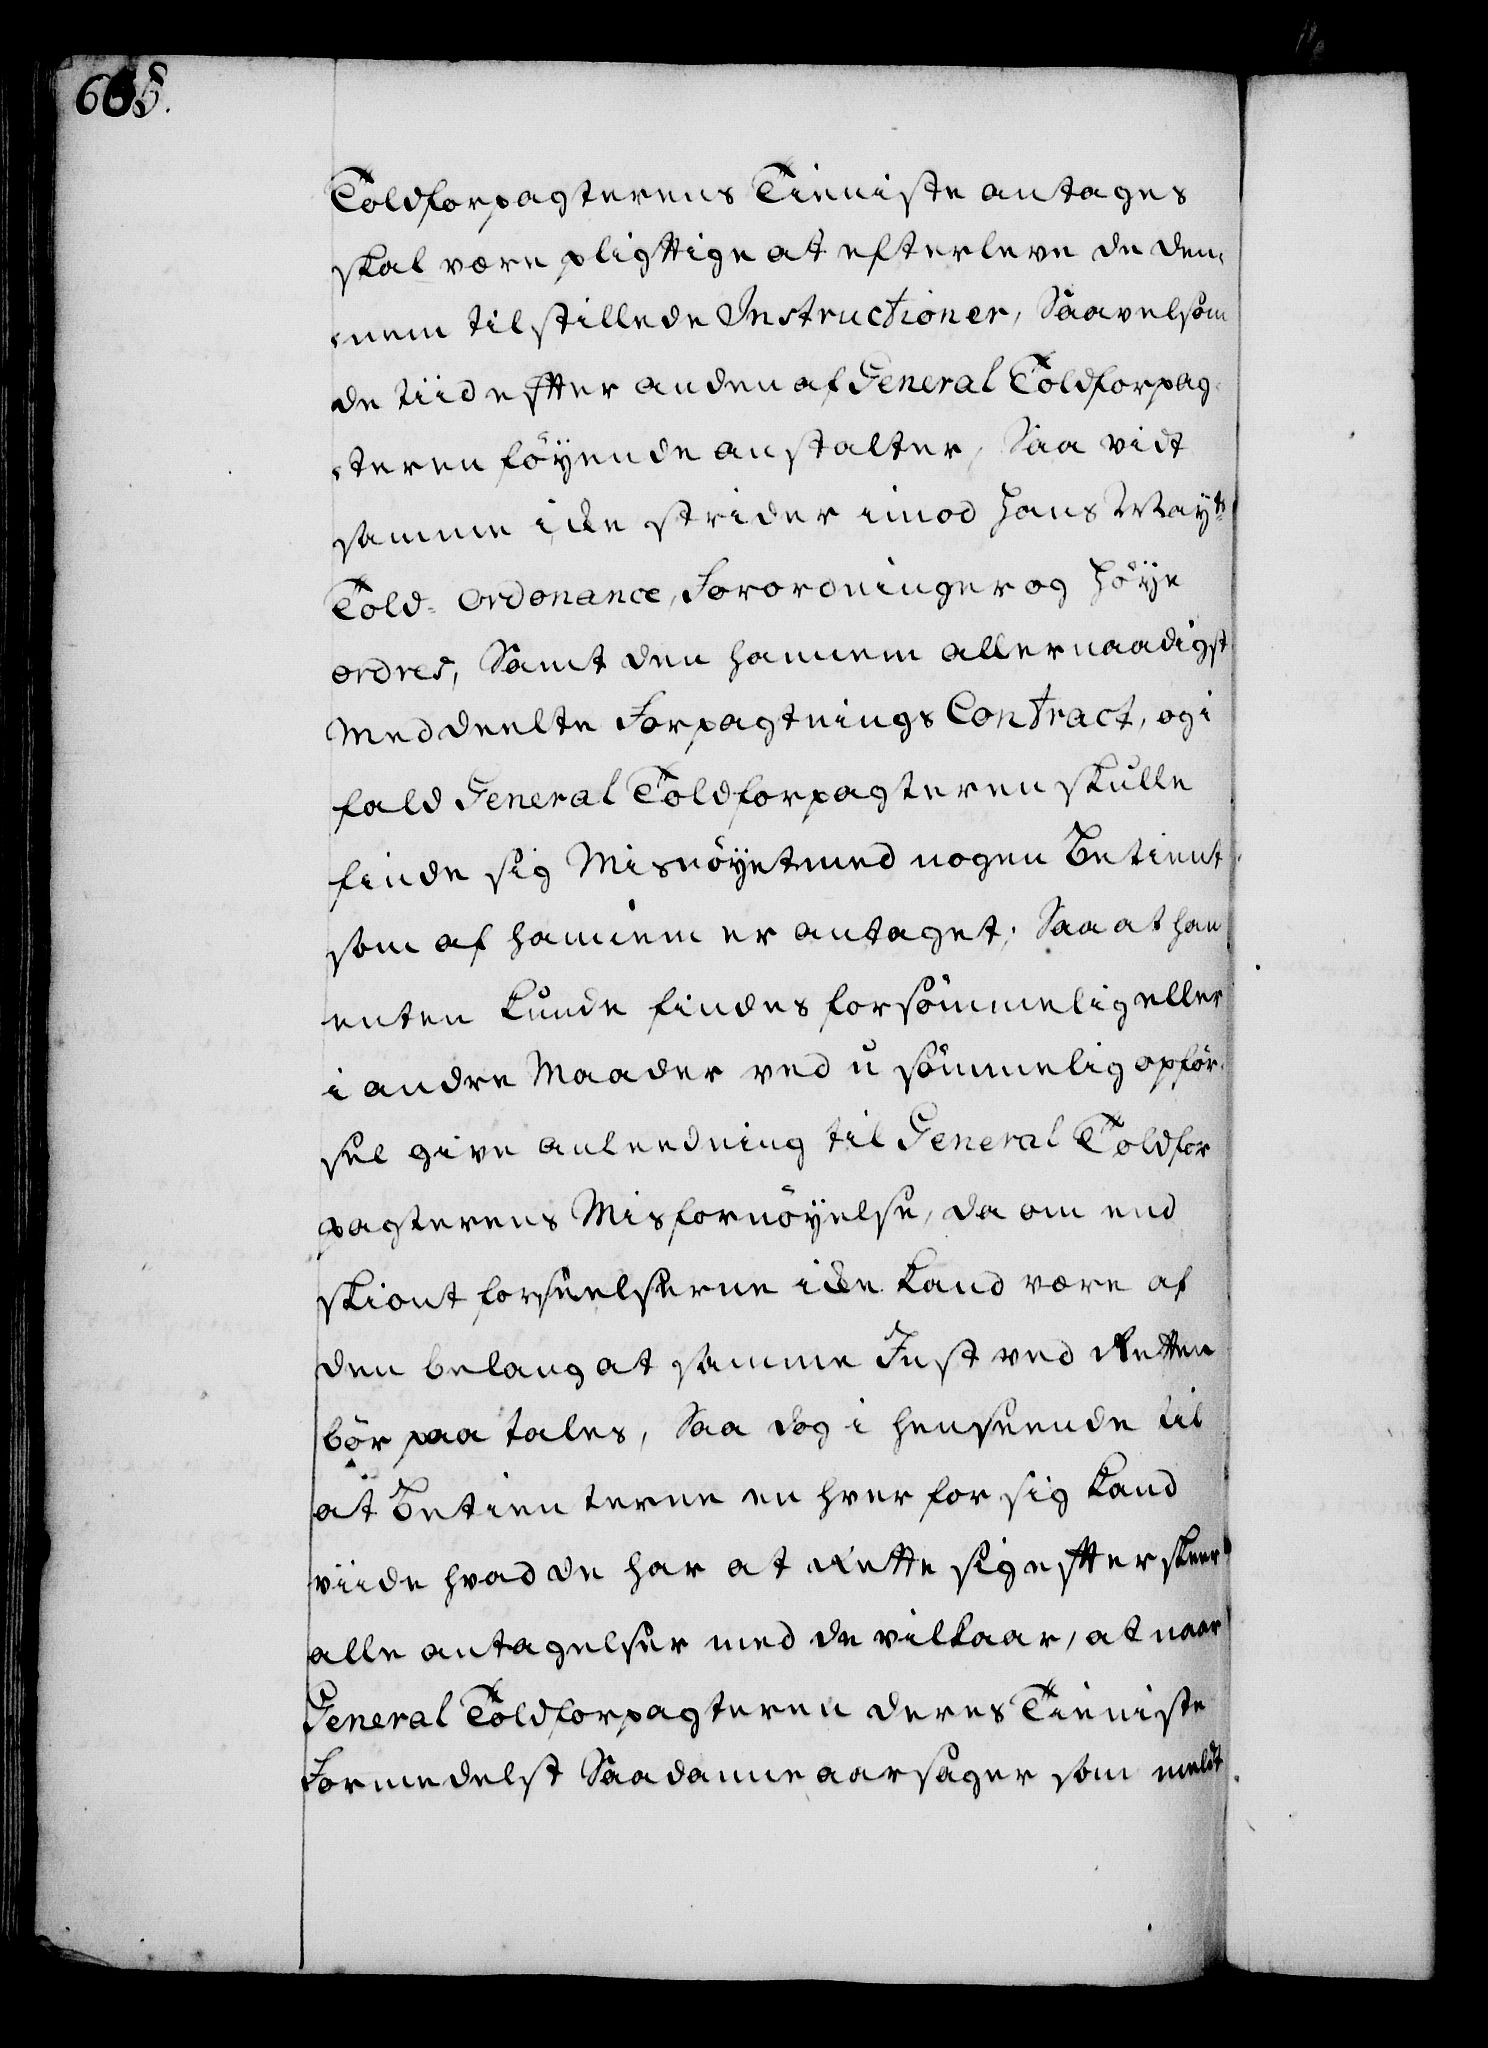 Toldforpagterens Tieniste antages
skal være pligttige at efterleve de dem,
,mem tilstillede Instructioner, Saavelsom
de tiid efter anden af General Toldforpag,
,teren föyende anstalter, Saa vidt
samme icke strider imod Hans Mayts
Told- ordonance, Forordninger og Höye
ordres, Samt den hannem allernaadigst
Meddeelte Forpagtnings Contract, og i
fald General Toldforpagteren skulle
finde sig Misnöyet med nogen Betient
som af hannem er antaget, Saa at han
enten kunde findes forsömmelig eller
i andre Maader ved usömmelig opför,
sel give anleedning til General Toldfor
pagterens Misfornöyelse, da om end
skiont forseelserne icke kand være af
den belang at samme Just ved Retten
bör paa tales, Saa dog i henseende til
at Betienterne en hver for sig kand
viide hvad de har at Rette sig efter skeer
alle antagelser med de vilkaar, at naar
General Toldforpagteren deres Tieniste
Formedelst Saadanne aarsager som meldt